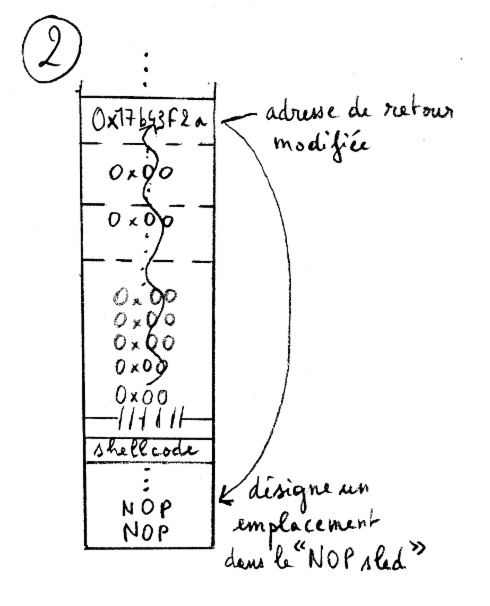 2
0x17b43f2a
adresse de retour
modifiée
0x00
0x00
0x00
0x00
0x00
0x00
0x00
shellcode
NOP
NOP
désigne un
emplacement
dans le "NOP sled"